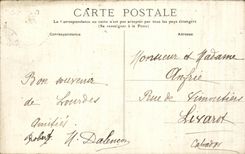 CARTE POSTALE
La Correspondance au recto n'est pas acceptée par tous les pays étrangers
(Se renseigner à la Poste)
Correspondance
Adresse
Bon souvenir
de Lourdes
Amitiés
Monsieur et Madame
Rue de
Livarot
Calvados